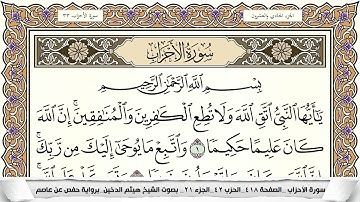 الجزء الحادي والعشرون
سورة الأحزاب ٣٣
سُورَةُ الأَحْزَابِ
بِسْمِ اللَّهِ الرَّحْمَٰنِ الرَّحِيمِ
يَٰٓأَيُّهَا ٱلنَّبِيُّ ٱتَّقِ ٱللَّهَ وَلَا تُطِعِ ٱلْكَٰفِرِينَ وَٱلْمُنَٰفِقِينَۗ إِنَّ ٱللَّهَ
كَانَ عَلِيمًا حَكِيمًا ١ وَٱتَّبِعْ مَا يُوحَىٰٓ إِلَيْكَ مِن رَّبِّكَۚ
سورة الأحزاب _ الصفحة ٤١٨ _ الحزب ٤٢ _ الجزء ٢١ _ بصوت الشيخ هيثم الدخين _ برواية حفص عن عاصم